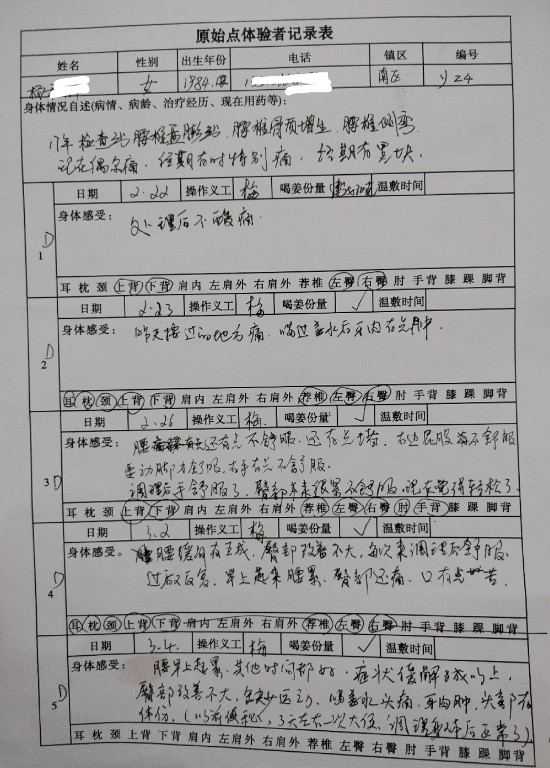 原始点体验者记录表
姓名 性别 出生年份 电话 镇区 编号
杨 女 1984 南区 Y24
身体情况自述(病情、病龄、治疗经历、现在用药等):
17年检查出腰椎盘膨出,腰椎骨质增生,腰椎侧弯
现在偶尔痛,经期有时特别痛,经期有黑块,
D1
日期 2.22 操作义工 梅 喝姜份量 温敷时间
身体感受:
处理后不酸痛.
耳 枕 颈 上背 下背 肩内 左肩外 右肩外 荐椎 左臀 右臀 肘 手背 膝 踝 脚背
D2
日期 2.23 操作义工 梅 喝姜份量 ✓ 温敷时间
身体感受: 昨天按过的地方痛. 喝过姜水后牙肉有点肿.
耳 枕 颈 上背 下背 肩内 左肩外 右肩外 荐椎 左臀 右臀 肘 手背 膝 踝 脚背
3D
日期 2.26 操作义工 梅. 喝姜份量 ✓ 温敷时间
身体感受: 腰 还有点不舒服 还有点 右边屁股 不舒服
动脚才舒服,右手有点不舒服.
调理后手舒服了, 臀部本来很累不舒服,现在觉得轻松了.
耳 枕 颈 上背 下背 肩内 左肩外 右肩外 荐椎 左臀 右臀 肘 手背 膝 踝 脚背
D4
日期 3.2 操作义工 梅 喝姜份量 ✓ 温敷时间
身体感受. 腰缓解有五成, 臀部改善不大, 每次来调理后舒服.
过后反复, 早上起来腰累, 臀部还痛, 口有点苦.
耳 枕 颈 上背 下背 肩内 左肩外 右肩外 荐椎 左臀 右臀 肘 手背 膝 踝 脚背
5D
日期 3.4. 操作义工 梅 喝姜份量 ✓ 温敷时间
身体感受: 腰早上起累. 其他时间都好. 症状缓解 成以上,
臀部改善不大, 缺少运动, 喝姜水头痛. 牙肉肿, 头部有
体伤, (以前便秘, 3天左右一次大便, 调理 后正常了)
耳 枕 颈 上背 下背 肩内 左肩外 右肩外 荐椎 左臀 右臀 肘 手背 膝 踝 脚背